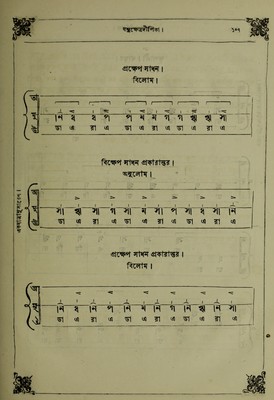 যন্ত্রক্ষেত্রদীপিকা। ১০৭
প্রক্ষেপ সাধন।
বিলোম।
নি ধ ধ প প ম ম গ গ ঋ ঋ সা
ডা এ রা এ ডা এ রা এ ডা এ রা এ
বিক্ষেপ সাধন প্রকারান্তর।
অনুলোম।
সা ঋ সা গ সা ম সা প সা ধ সা নি
ডা এ রা এ ডা এ রা এ ডা এ রা এ
প্রক্ষেপ সাধন প্রকারান্তর।
বিলোম।
নি ধ নি প নি ম নি গ নি ঋ নি সা
ডা এ রা এ ডা এ রা এ ডা এ রা এ